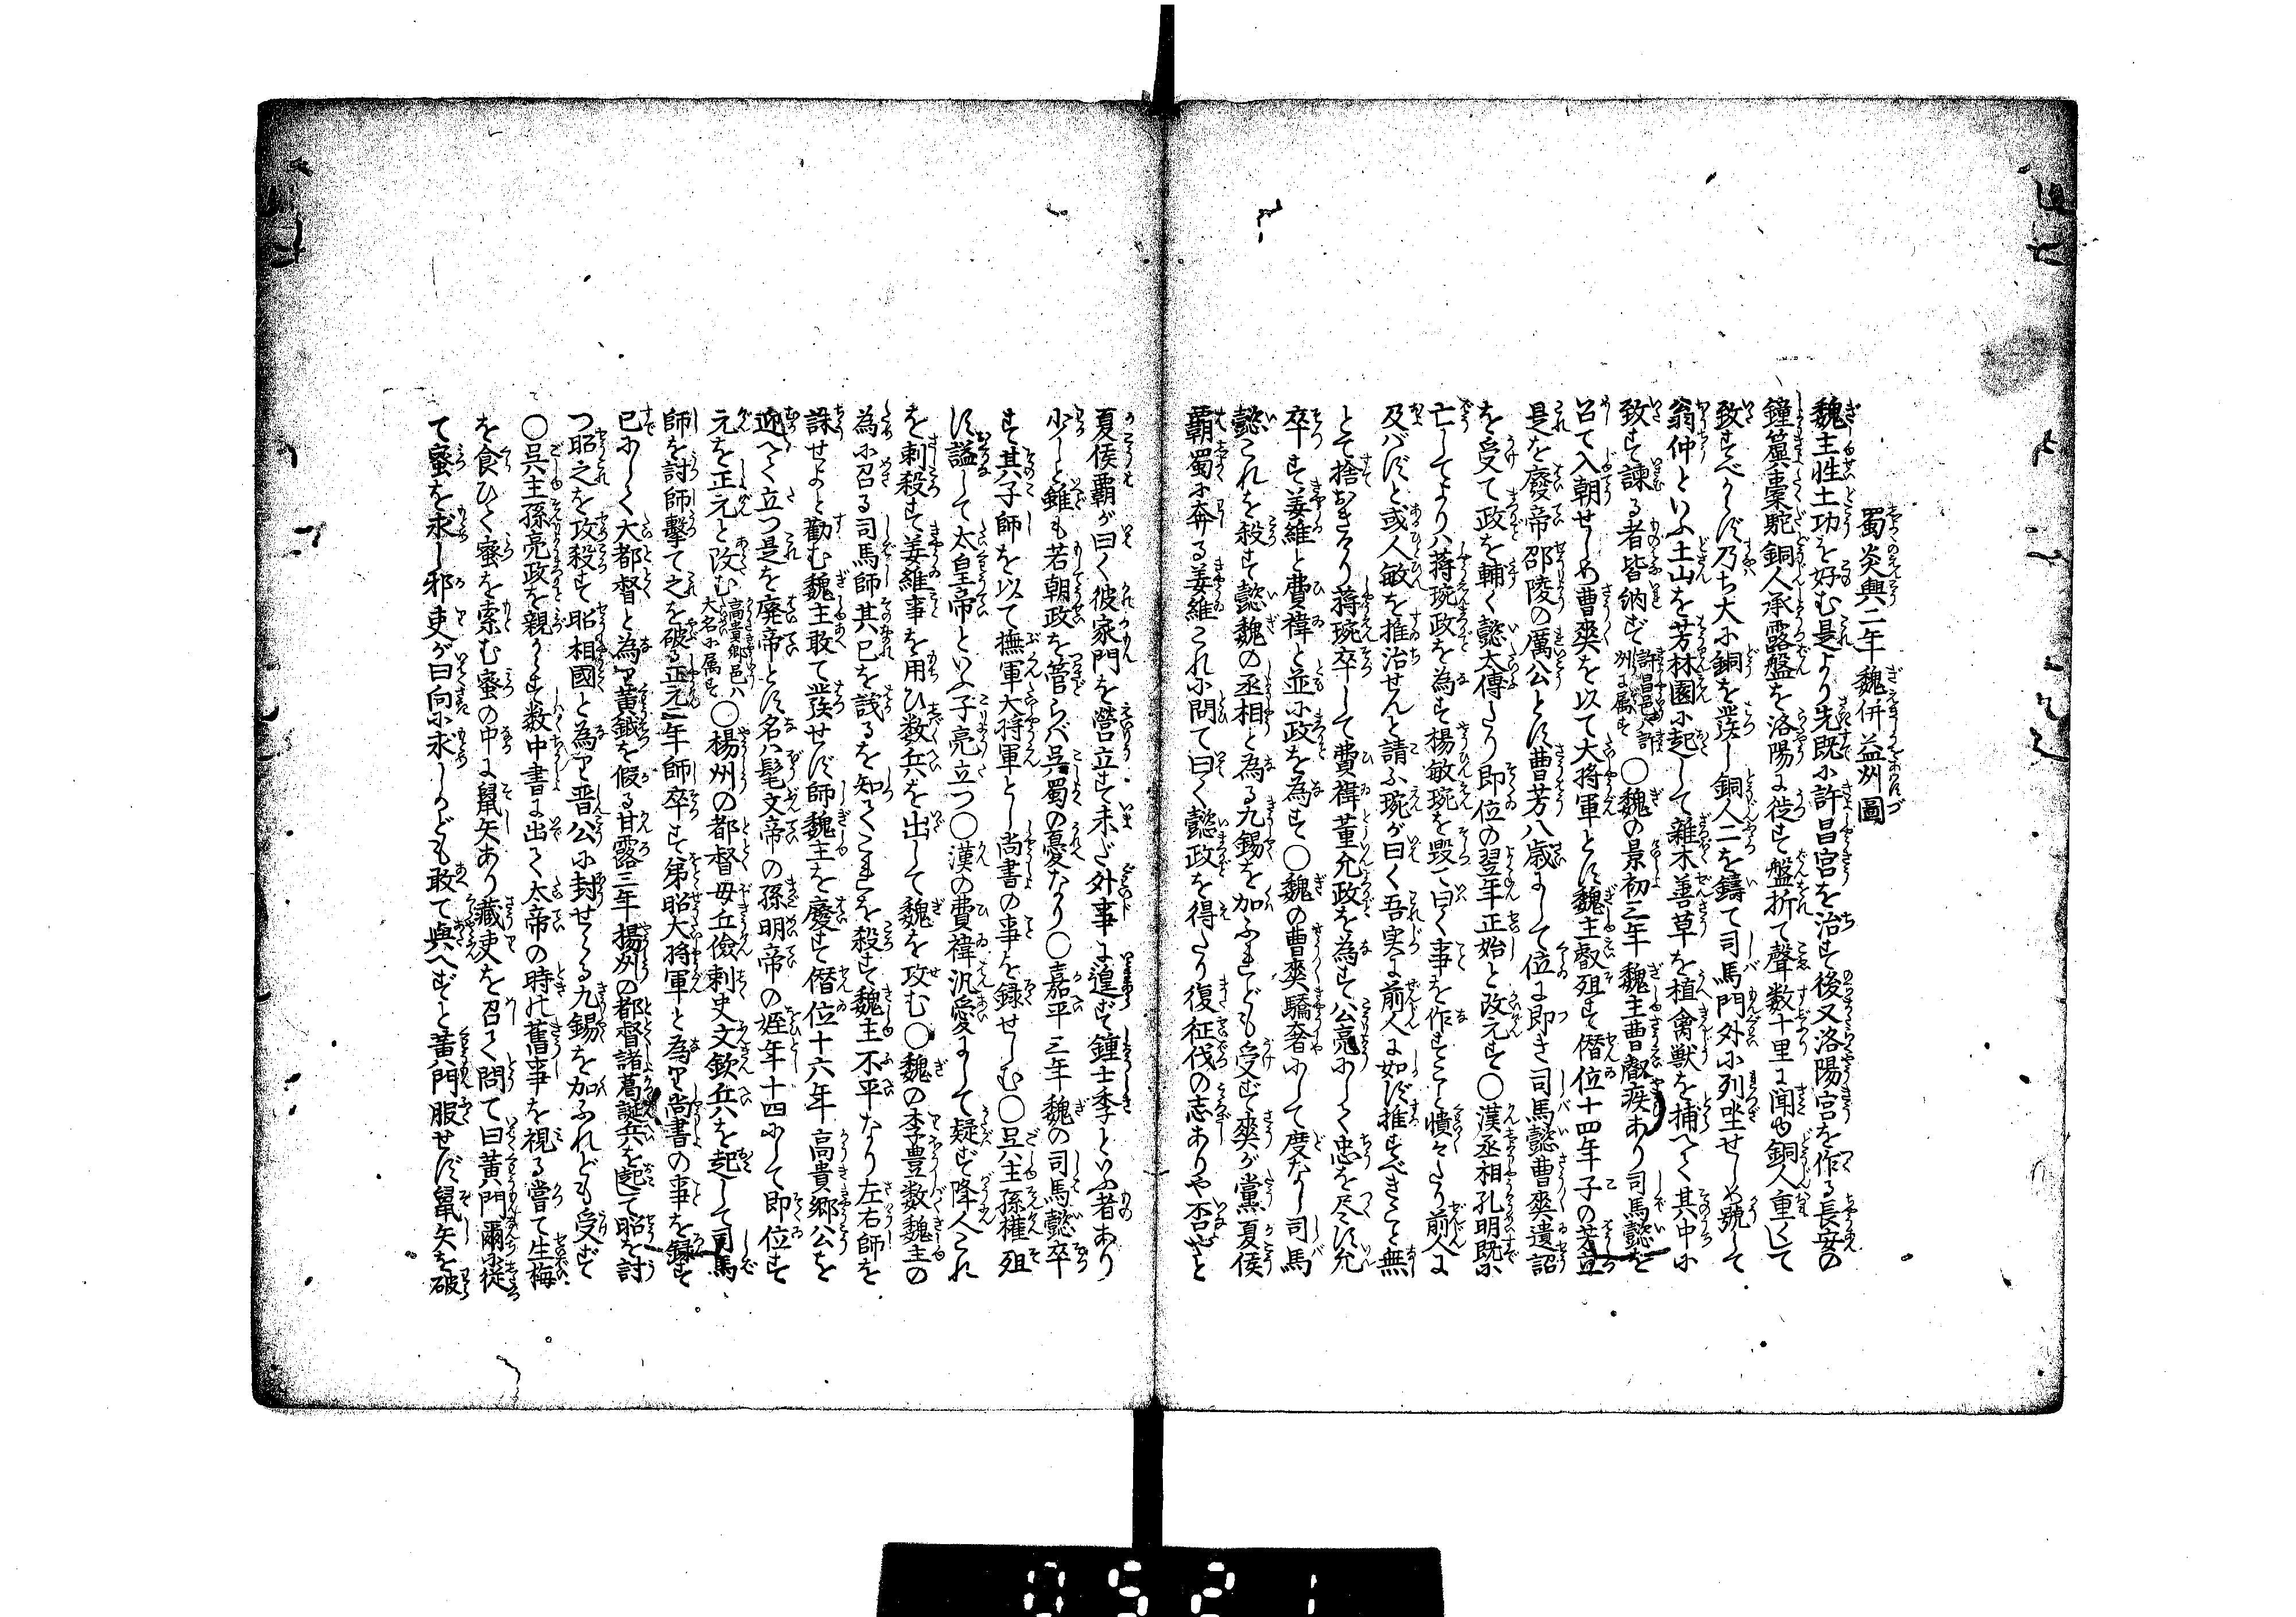 蜀炎興二年魏併益州圖
魏主性土功を好む是より先既に許昌宮を治す後又洛陽宮を作る長安の
鐘簴橐駝銅人承露盤を洛陽に徙す盤折て聲数十里に聞ゆ銅人重くして
致すべからず乃ち大に銅を発し銅人二を鑄て司馬門外に列坐せしめ號して
翁仲といふ土山を芳林園に起して雜木善草を植禽獣を捕へて其中に
致す諫る者皆納ず許昌邑ハ許州に属す〇魏の景初三年魏主曹叡疾あり司馬懿を
召て入朝せしめ曹爽を以て大将軍とす魏主叡殂す僭位十四年子の芳立
是を廢帝邵陵の厲公とす曹芳八歳にして位に即き司馬懿曹爽遺詔
を受て政を輔く懿太傅たり即位の翌年正始と改元す〇漢丞相孔明既に
亡してより八蔣琬政を為す楊敏琬を毀て曰く事を作すこと憒々たり前人に
及バずと或人敏を推治せんと請ふ琬が曰く吾実に前人に如ず推すべきこと無
とて捨おきたり蔣琬卒して費禕董允政を為す公亮にして忠を尽す允
卒す姜維と費禕と並に政を為す〇魏の曹爽驕奢にして度なし司馬
懿これを殺す懿魏の丞相と為る九錫を加ふれども受ず爽が黨夏侯
覇蜀に奔る姜維これに問て曰く懿政を得たり復征伐の志ありや否やと
夏侯覇が曰く彼家門を營立す未だ外事に遑ず鐘士季といふ者あり
少しと雖も若朝政を管らバ呉蜀の憂なり〇嘉平三年魏の司馬懿卒
す其子師を以て撫軍大将軍とし尚書の事を録せしむ〇呉主孫權殂
す謚して太皇帝といふ子亮立つ〇漢の費禕汎愛にして疑ず降人これ
を刺殺す姜維事を用ひ数兵を出して魏を攻む〇魏の李豊数魏主の
為に召る司馬師其己を議るを知てこれを殺す魏主不平なり左右師を
誅せよと勸む魏主敢て発せず師魏主を廢す僭位十六年高貴郷公を
迎へて立つ是を廃帝とす名ハ髦文帝の孫明帝の姪年十四にして即位す
元を正元と改む高貴郷邑ハ大名に属す〇楊州の都督毋丘儉刺史文欽兵を起して司馬
師を討師撃て之を破る正元二年師卒す弟昭大将軍と為り尚書の事を録す
已にして大都督と為り黄鉞を假る甘露三年楊州の都督諸葛誕兵を起て昭を討
つ昭之を攻殺す昭相國と為り晋公に封せらる九錫を加ふれども受ず
〇呉主孫亮政を親らす数中書に出て太帝の時の舊事を視る嘗て生梅
を食ひて蜜を索む蜜の中に鼠矢あり藏吏を召て問て曰黄門爾に従
て蜜を求しや吏が曰向に求しかども敢て與へずと黄門服せず鼠矢を破